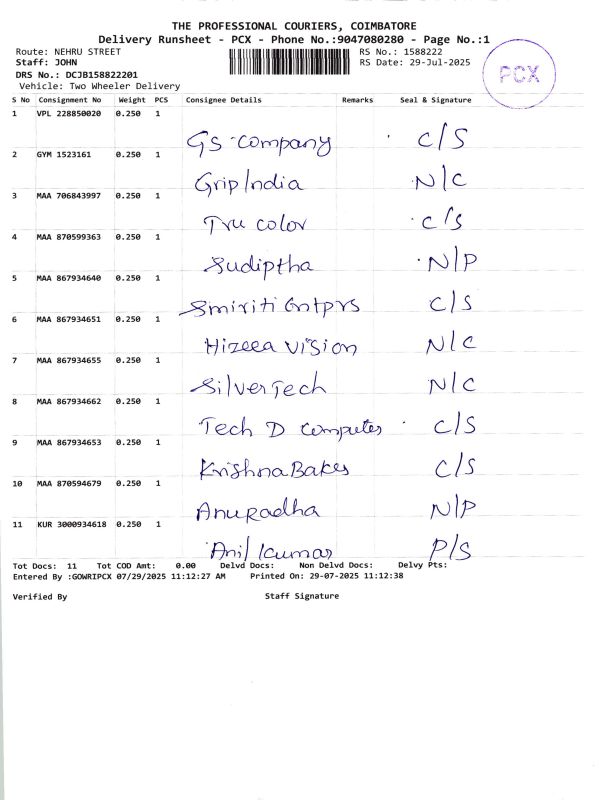 THE PROFESSIONAL COURIERS, COIMBATORE
Delivery Runsheet - PCX - Phone No.:9047080280 - Page No.:1
Route: NEHRU STREET RS No.: 1588222
Staff: JOHN RS Date: 29-Jul-2025
PCX
DRS No.: DCJB158822201
Vehicle: Two Wheeler Delivery
S No Consignment No Weight PCS Consignee Details Remarks Seal & Signature
1 VPL 228850020 0.250 1
GS Company C/S
2 GYM 1523161 0.250 1
Grip India N/C
3 MAA 706843997 0.250 1
Tru color C/S
4 MAA 870599363 0.250 1
Sudiptha N/P
5 MAA 867934640 0.250 1
Smiriti Entprs C/S
6 MAA 867934651 0.250 1
Hizeea Vision N/C
7 MAA 867934655 0.250 1
SilverTech N/C
8 MAA 867934662 0.250 1
Tech D Computer C/S
9 MAA 867934653 0.250 1
Krishna Bakes C/S
10 MAA 870594679 0.250 1
Anuradha N/P
11 KUR 3000934618 0.250 1
Anil kumar P/S
Tot Docs: 11 Tot COD Amt: 0.00 Delvd Docs: Non Delvd Docs: Delvy Pts:
Entered By :GOWRIPCX 07/29/2025 11:12:27 AM Printed On: 29-07-2025 11:12:38
Verified By Staff Signature